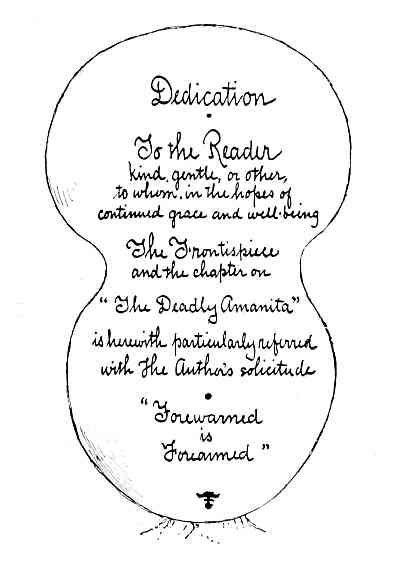 Dedication
To the Reader
kind, gentle, or other,
to whom, in the hopes of
continued grace and well-being
The Frontispiece
and the chapter on
"The Deadly Amanita"
is herewith particularly referred
with The Author's solicitude
"Forewarned
is
Forearmed"